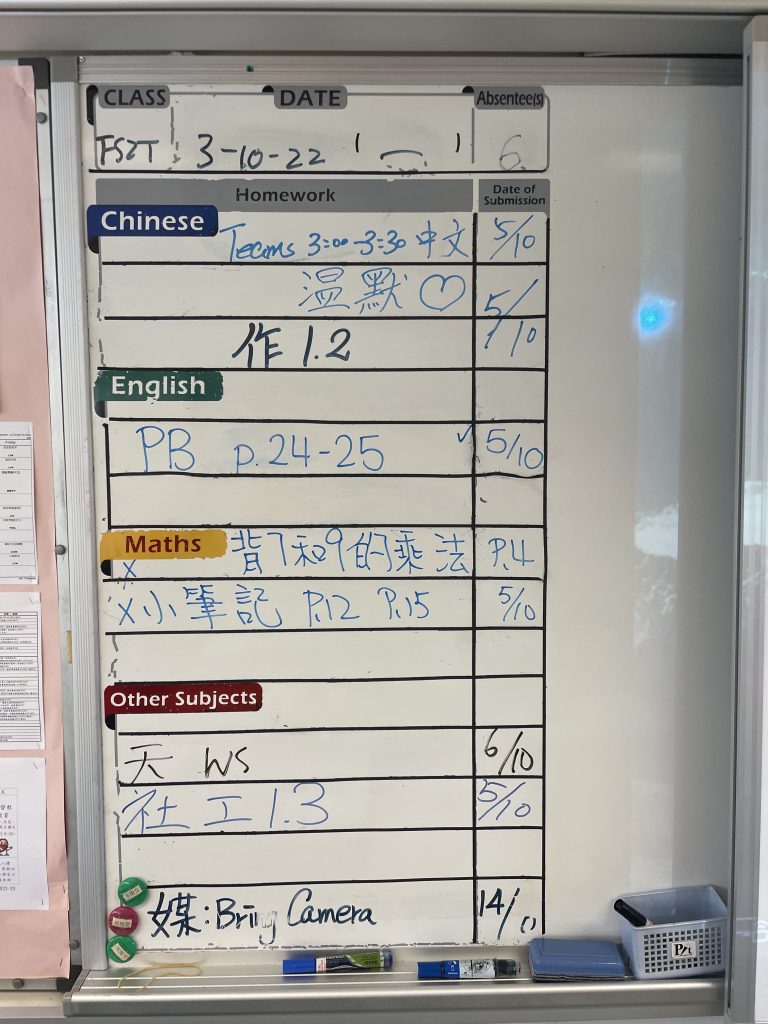 CLASS DATE Absentee(s)
3-10-22 ( 一 ) 6
Homework Date of Submission
Chinese Teams 3:00-3:30 中文 5/10
溫默♡ 5/10
作1.2
English
PB p.24-25 ✓ 5/10
Maths 背7和9的乘法 P.4
x
x小筆記 P.12 P.15 5/10
Other Subjects
天 WS 6/10
社工1.3 5/10
媒:Bring Camera 14/11